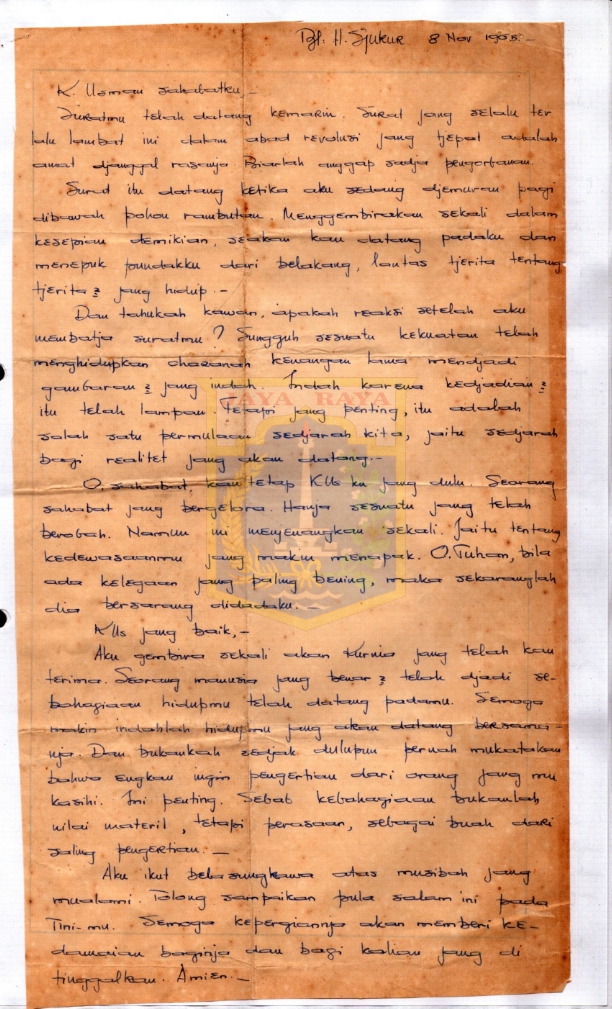 Dft. H. Sjukur 8 Nov 1955.-
K. Usman sahabatku,-
Suratmu telah datang kemarin. Surat jang selalu ter
lalu lambat ini dalam abad revolusi jang tjepat adalah
amat djanggal rasanja. Biarlah anggap sadja pengorbanan.
Surat itu datang ketika aku sedang djemuran pagi
dibawah pohon rambutan. Menggembirakan sekali dalam
kesepian demikian, seakan kau datang padaku dan
menepuk pundakku dari belakang, lantas tjerita tentang
tjerita2 jang hidup.-
Dan tahukah kawan, apakah reaksi setelah aku
membatja suratmu? Sungguh sesuatu kekuatan telah
menghidupkan chazanah kenangan lama mendjadi
gambaran2 jang indah. Indah karena kedjadian2
itu telah lampau. Tetapi jang penting, itu adalah
salah satu permulaan sedjarah kita, jaitu sedjarah
bagi realitet jang akan datang.-
JAYA RAYA
O, sahabat, kau tetap KUs ku jang dulu. Seorang
sahabat jang bergelora. Hanja sesuatu jang telah
berobah. Namun ini menjenangkan sekali. Jaitu tentang
kedewasaanmu jang makin menapak. O, Tuhan, bila
ada kelegaan jang paling bening, maka sekaranglah
dia bersarang didadaku.-
KUs jang baik,-
Aku gembira sekali akan Kurnia jang telah kau
terima. Seorang manusia jang benar2 telah djadi se-
bahagiaan hidupmu telah datang padamu. Semoga
makin indahlah hidupmu jang akan datang bersama-
nja. Dan bukankah sedjak dulupun pernah mukatakan
bahwa engkau ingin pengertian dari orang jang mu
kasihi. Ini penting. Sebab kebahagiaan bukanlah
nilai materil, tetapi perasaan, sebagai buah dari
saling pengertian.-
Aku ikut belasungkawa atas musibah jang
mualami. Tolong sampaikan pula salam ini pada
Tini-mu. Semoga kepergiannja akan memberi ke-
damaian baginja dan bagi kalian jang di
tinggalkan. Amien.-